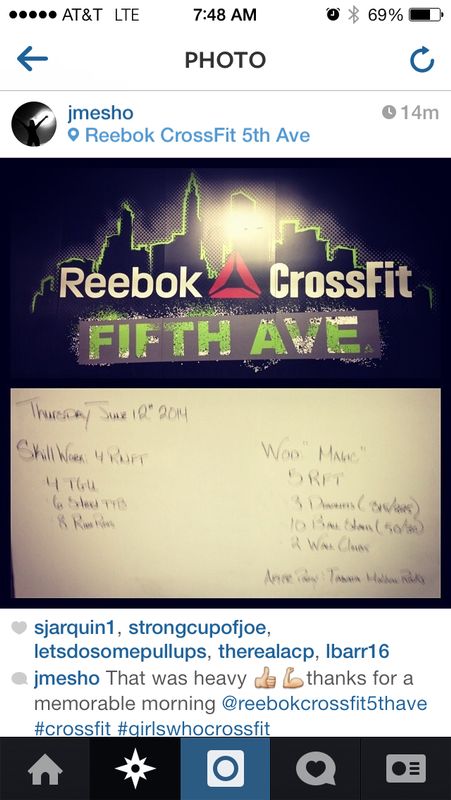 AT&T LTE 7:48 AM 69%
PHOTO
jmesho 14m
Reebok CrossFit 5th Ave
Reebok CrossFit
FIFTH AVE.
Thursday June 12th 2014
Skill Work: 4 RNFT
4 TGU
8 Ring Rows
WOD "Magic"
5 RFT
3
10 Ball Slams (50/
2 Wall Climbs
After Party: Tabata Hollow Rocks
sjarquin1, strongcupofjoe,
letsdosomepullups, therealacp, lbarr16
jmesho That was heavy 👍💪thanks for a
memorable morning @reebokcrossfit5thave
#crossfit #girlswhocrossfit